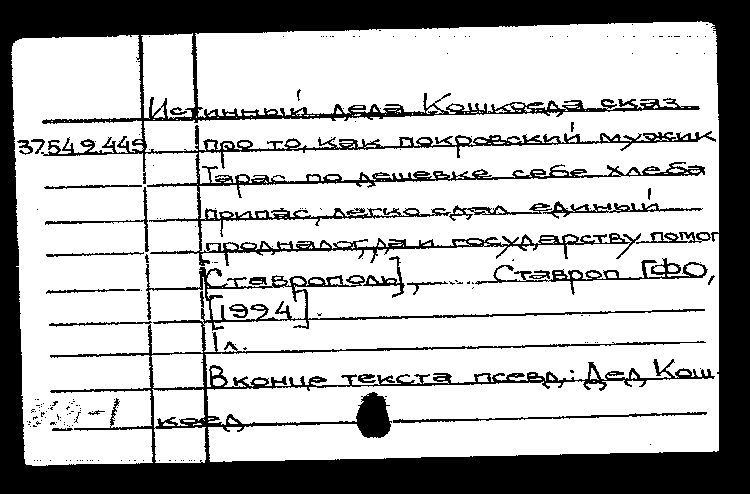 Истинный деда Кошкоеда сказ
37.549.445. про то, как покровский мужик
Тарас по дешевке себе хлеба
припас, легко сдал единый
продналог, да и государству помог
[Ставрополь], Ставроп ГФО,
[1994].
1 л.
В конце текста псевд.: Дед Кош-
коед